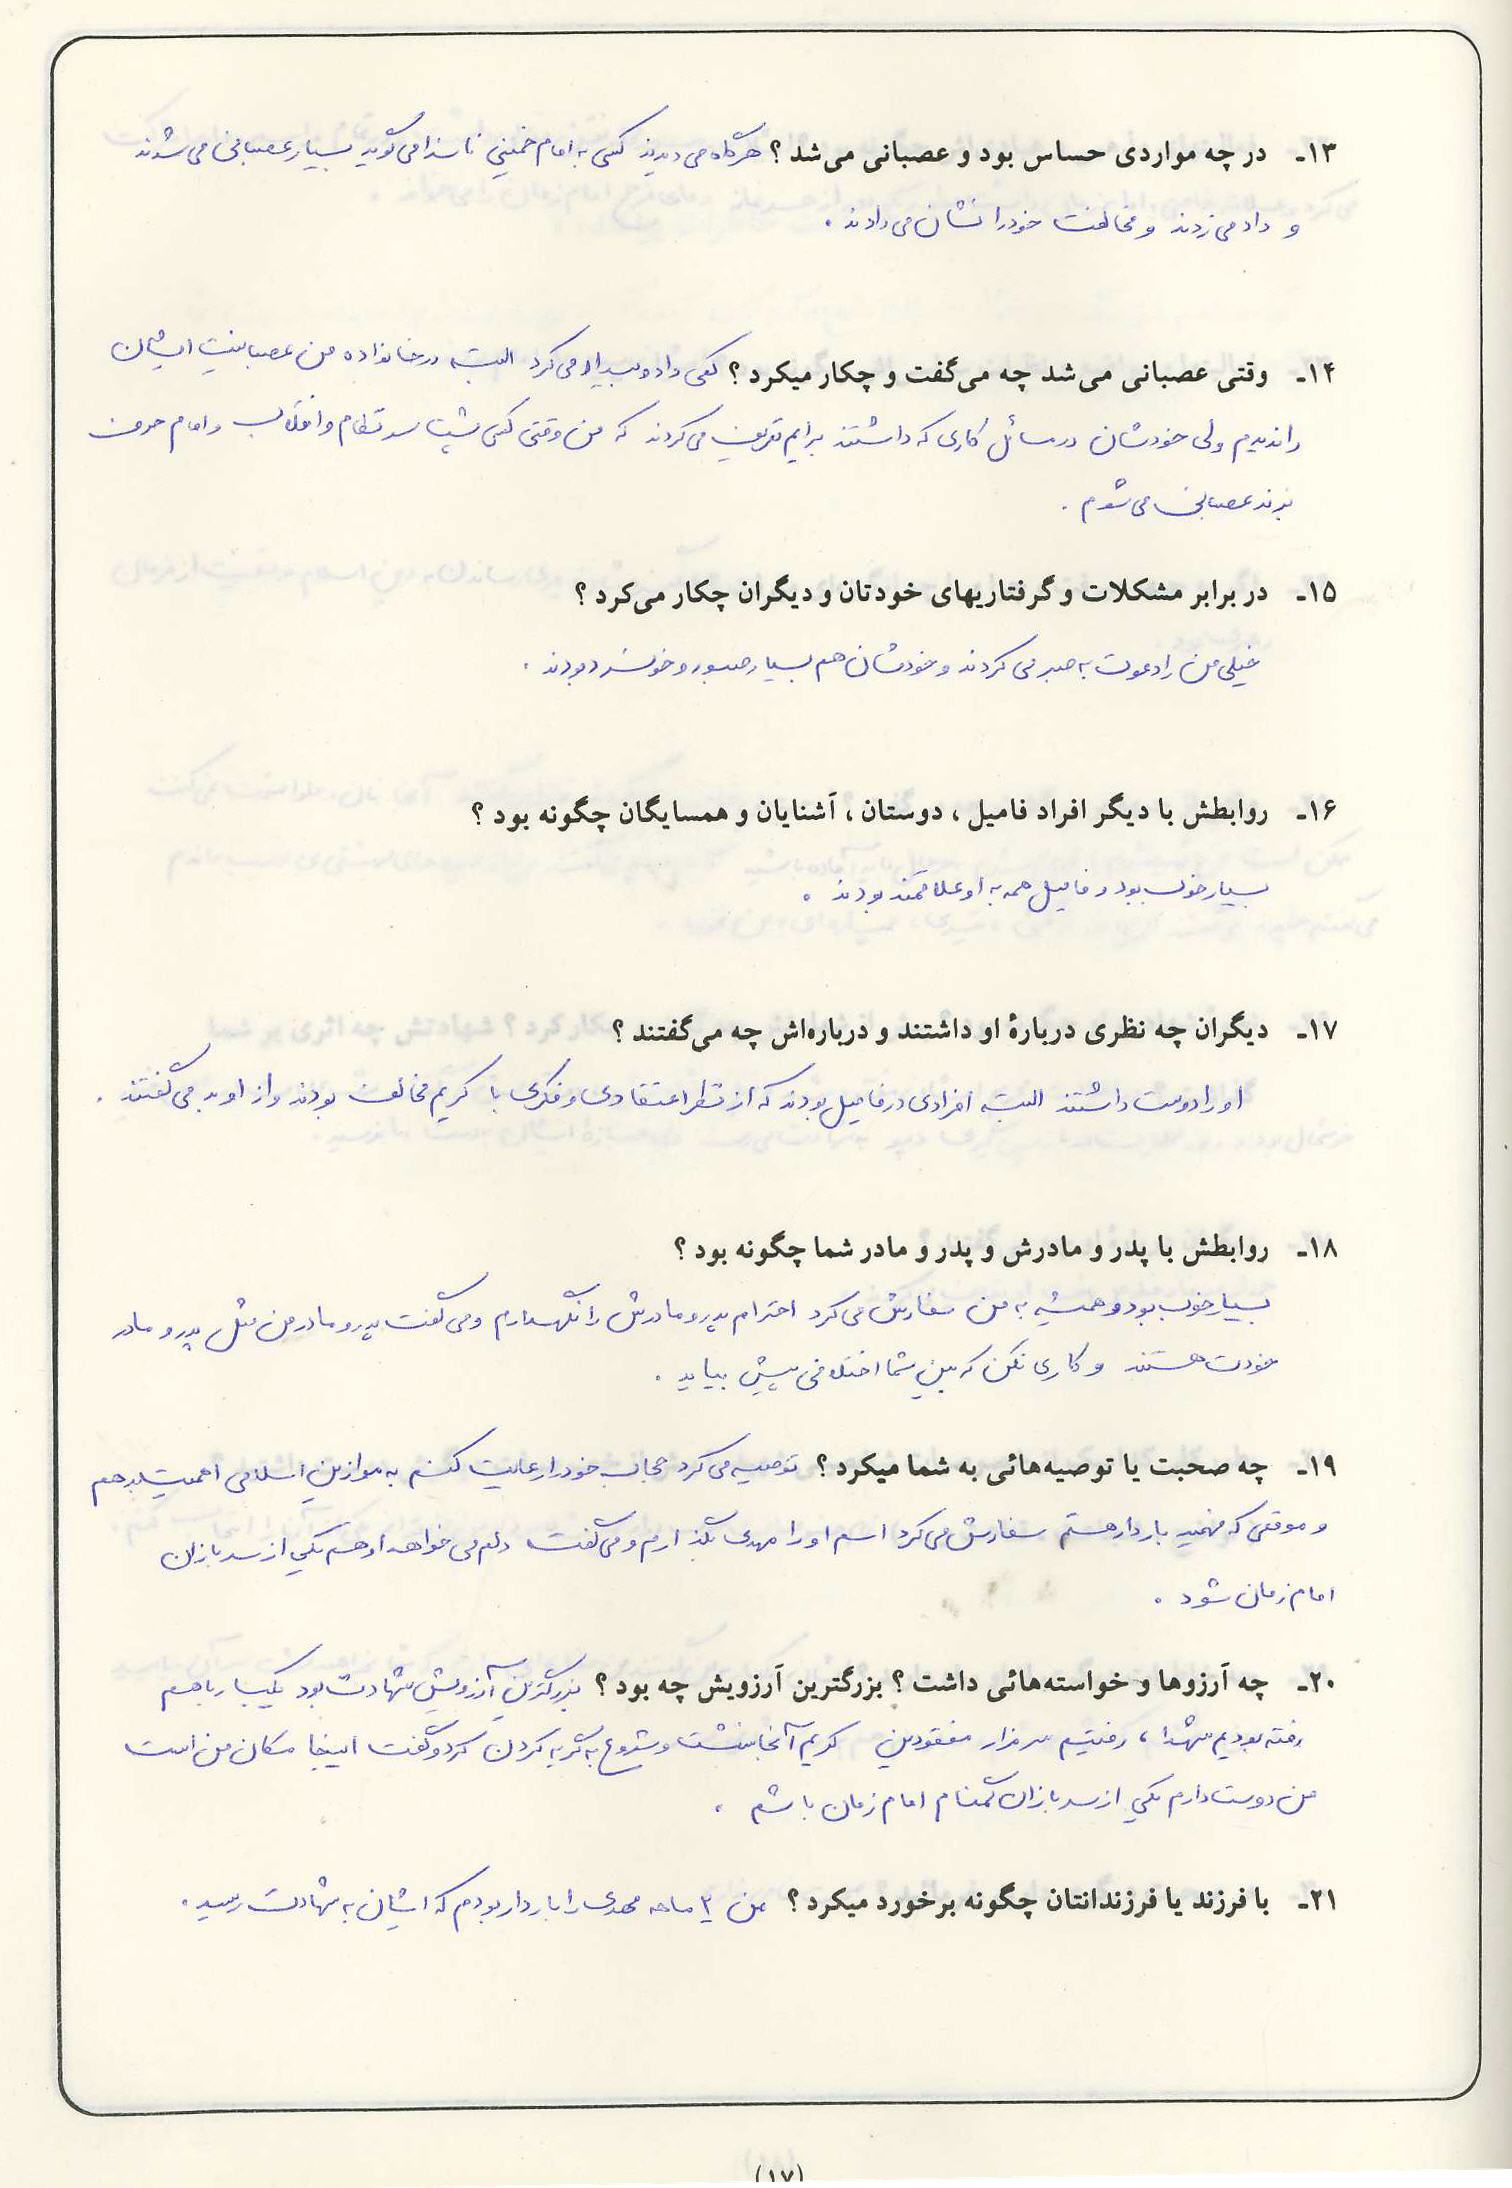 ۱۳ـ در چه مواردی حساس بود و عصبانی می‌شد ؟ هرگاه می دیدند کسی به امام خمینی ناسزا می گوید بسیار عصبانی می شدند
و داد می زدند و مخالفت خود را نشان می دادند .
۱۴ـ وقتی عصبانی می‌شد چه می‌گفت و چکار میکرد ؟ کمی داد و بیداد می کرد البته در خانواده من عصبانیت ایشان
را ندیدم ولی خودشان در مسائل کاری که داشتند برایم تعریف می کردند که من وقتی کسی پشت سر نظام و انقلاب و امام حرف
بزند عصبانی می شوم .
۱۵ـ در برابر مشکلات و گرفتاریهای خودتان و دیگران چکار می‌کرد ؟
خیلی من را دعوت به صبر می کردند و خودشان هم بسیار صبور و خونسرد بودند .
۱۶ـ روابطش با دیگر افراد فامیل ، دوستان ، آشنایان و همسایگان چگونه بود ؟
بسیار خوب بود و فامیل همه به او علاقمند بودند .
۱۷ـ دیگران چه نظری دربارهٔ او داشتند و درباره‌اش چه می‌گفتند ؟
او را دوست داشتند البته افرادی در فامیل بودند که از نظر اعتقادی و فکری با کریم مخالف بودند و از او بد می گفتند .
۱۸ـ روابطش با پدر و مادرش و پدر و مادر شما چگونه بود ؟
بسیار خوب بود و همیشه به من سفارش می کرد احترام پدر و مادرش را نگهدارم و می گفت پدر و مادر من مثل پدر و مادر
خودت هستند و کاری نکن که بین شما اختلافی پیش بیاید .
۱۹ـ چه صحبت یا توصیه‌هائی به شما میکرد ؟ توصیه می کرد حجاب خود را رعایت کنم به موازین اسلامی اهمیت بدهم
و موقعی که فهمید باردار هستم سفارش می کرد اسم او را مهدی بگذارم و می گفت دلم می خواهد او هم یکی از سربازان
امام زمان شود .
۲۰ـ چه آرزوها و خواسته‌هائی داشت ؟ بزرگترین آرزویش چه بود ؟ بزرگترین آرزویش شهادت بود یکبار با هم
رفته بودیم شهدا ، رفتیم سر مزار مفقودین کریم آنجا نشست و شروع به گریه کردن کرد و گفت اینجا مکان من است
من دوست دارم یکی از سربازان گمنام امام زمان باشم .
۲۱ـ با فرزند یا فرزندانتان چگونه برخورد میکرد ؟ من ۲ ماهه مهدی را باردار بودم که ایشان به شهادت رسید .
(۱۷)